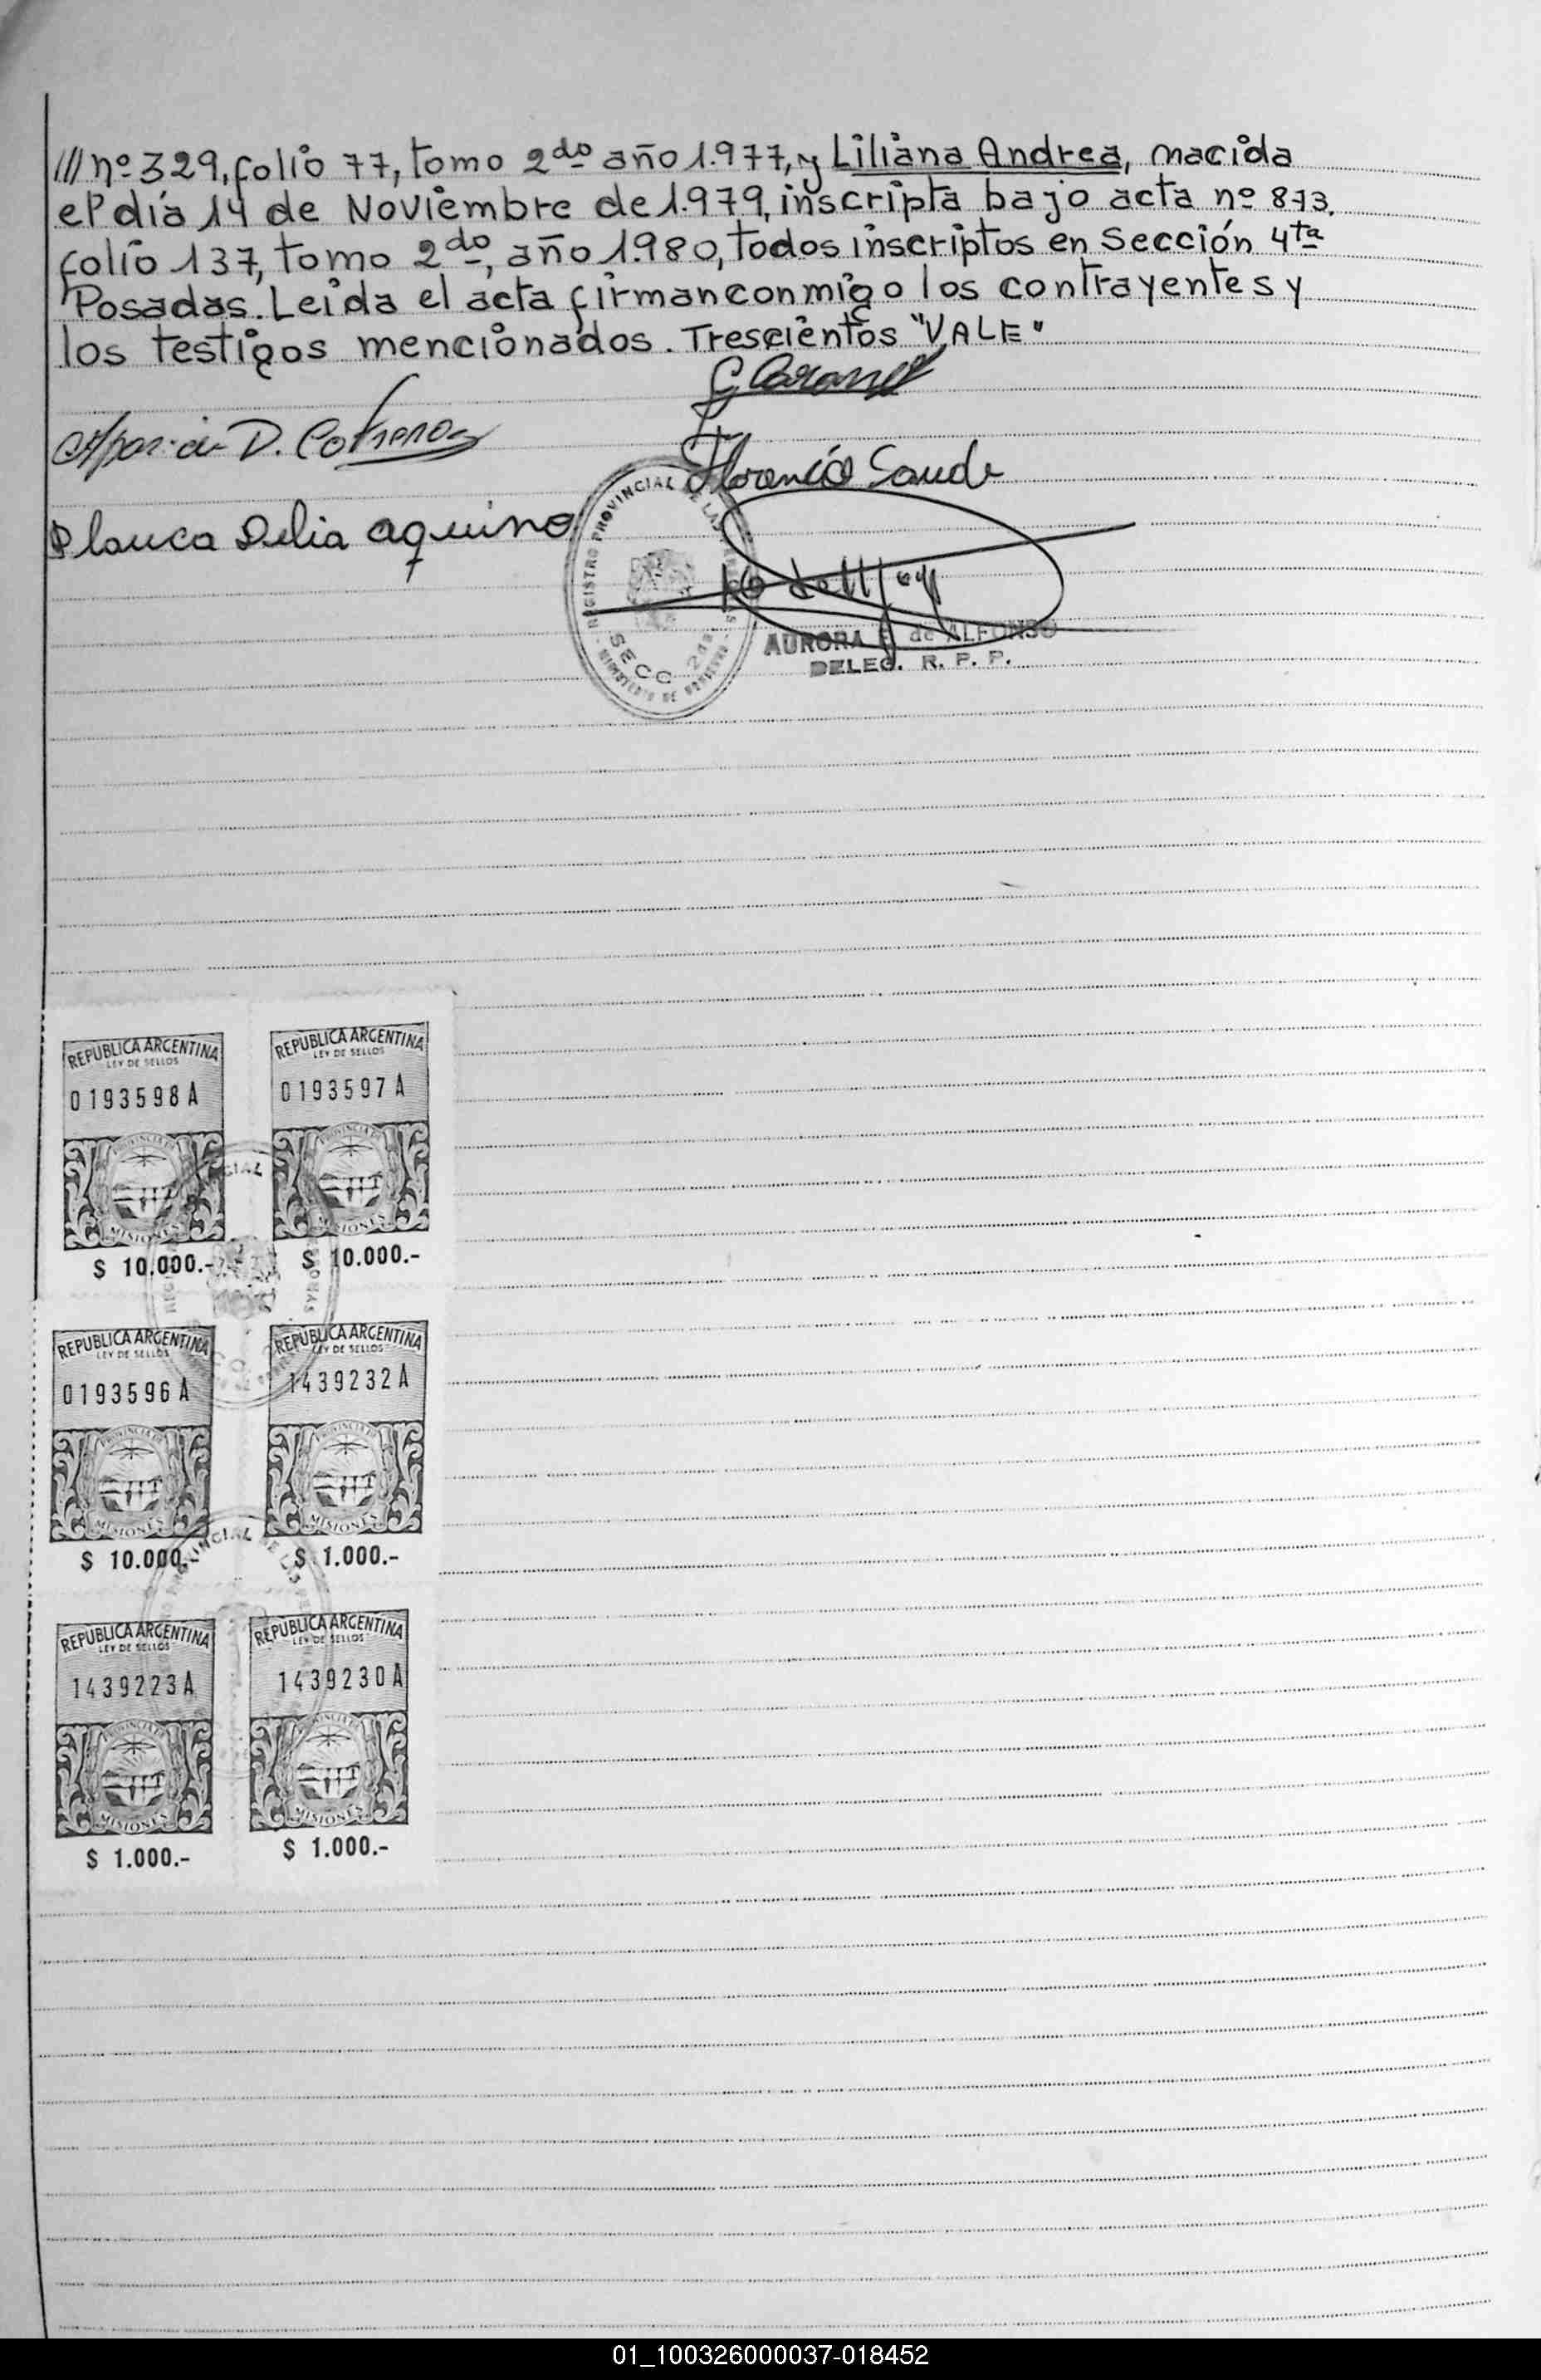 /// nº 329, folio 77, tomo 2do año 1.977, y Liliana Andrea, nacida
el día 14 de Noviembre de 1.979, inscripta bajo acta nº 873,
folio 137, tomo 2do, año 1.980, todos inscriptos en Sección 4ta
Posadas. Leida el acta firman conmigo los contrayentes y
los testigos mencionados. Trescientos "VALE"
D. 
Florencio
Blanca Delia Aquino
REGISTRO PROVINCIAL DE LAS PERSONAS
SECC. 2da.
AURORA E. de ALFONSO
DELEG. R. P. P.
REPUBLICA ARGENTINA REPUBLICA ARGENTINA
LEY DE SELLOS LEY DE SELLOS
0193598 A 0193597 A
PROVINCIA DE PROVINCIA DE
MISIONES MISIONES
$ 10.000.- $ 10.000.-
REPUBLICA ARGENTINA REPUBLICA ARGENTINA
LEY DE SELLOS LEY DE SELLOS
0193596 A 1439232 A
PROVINCIA DE PROVINCIA DE
MISIONES MISIONES
$ 10.000.- $ 1.000.-
REPUBLICA ARGENTINA REPUBLICA ARGENTINA
LEY DE SELLOS LEY DE SELLOS
1439223 A 1439230 A
PROVINCIA DE PROVINCIA DE
MISIONES MISIONES
$ 1.000.- $ 1.000.-
01_100326000037-018452